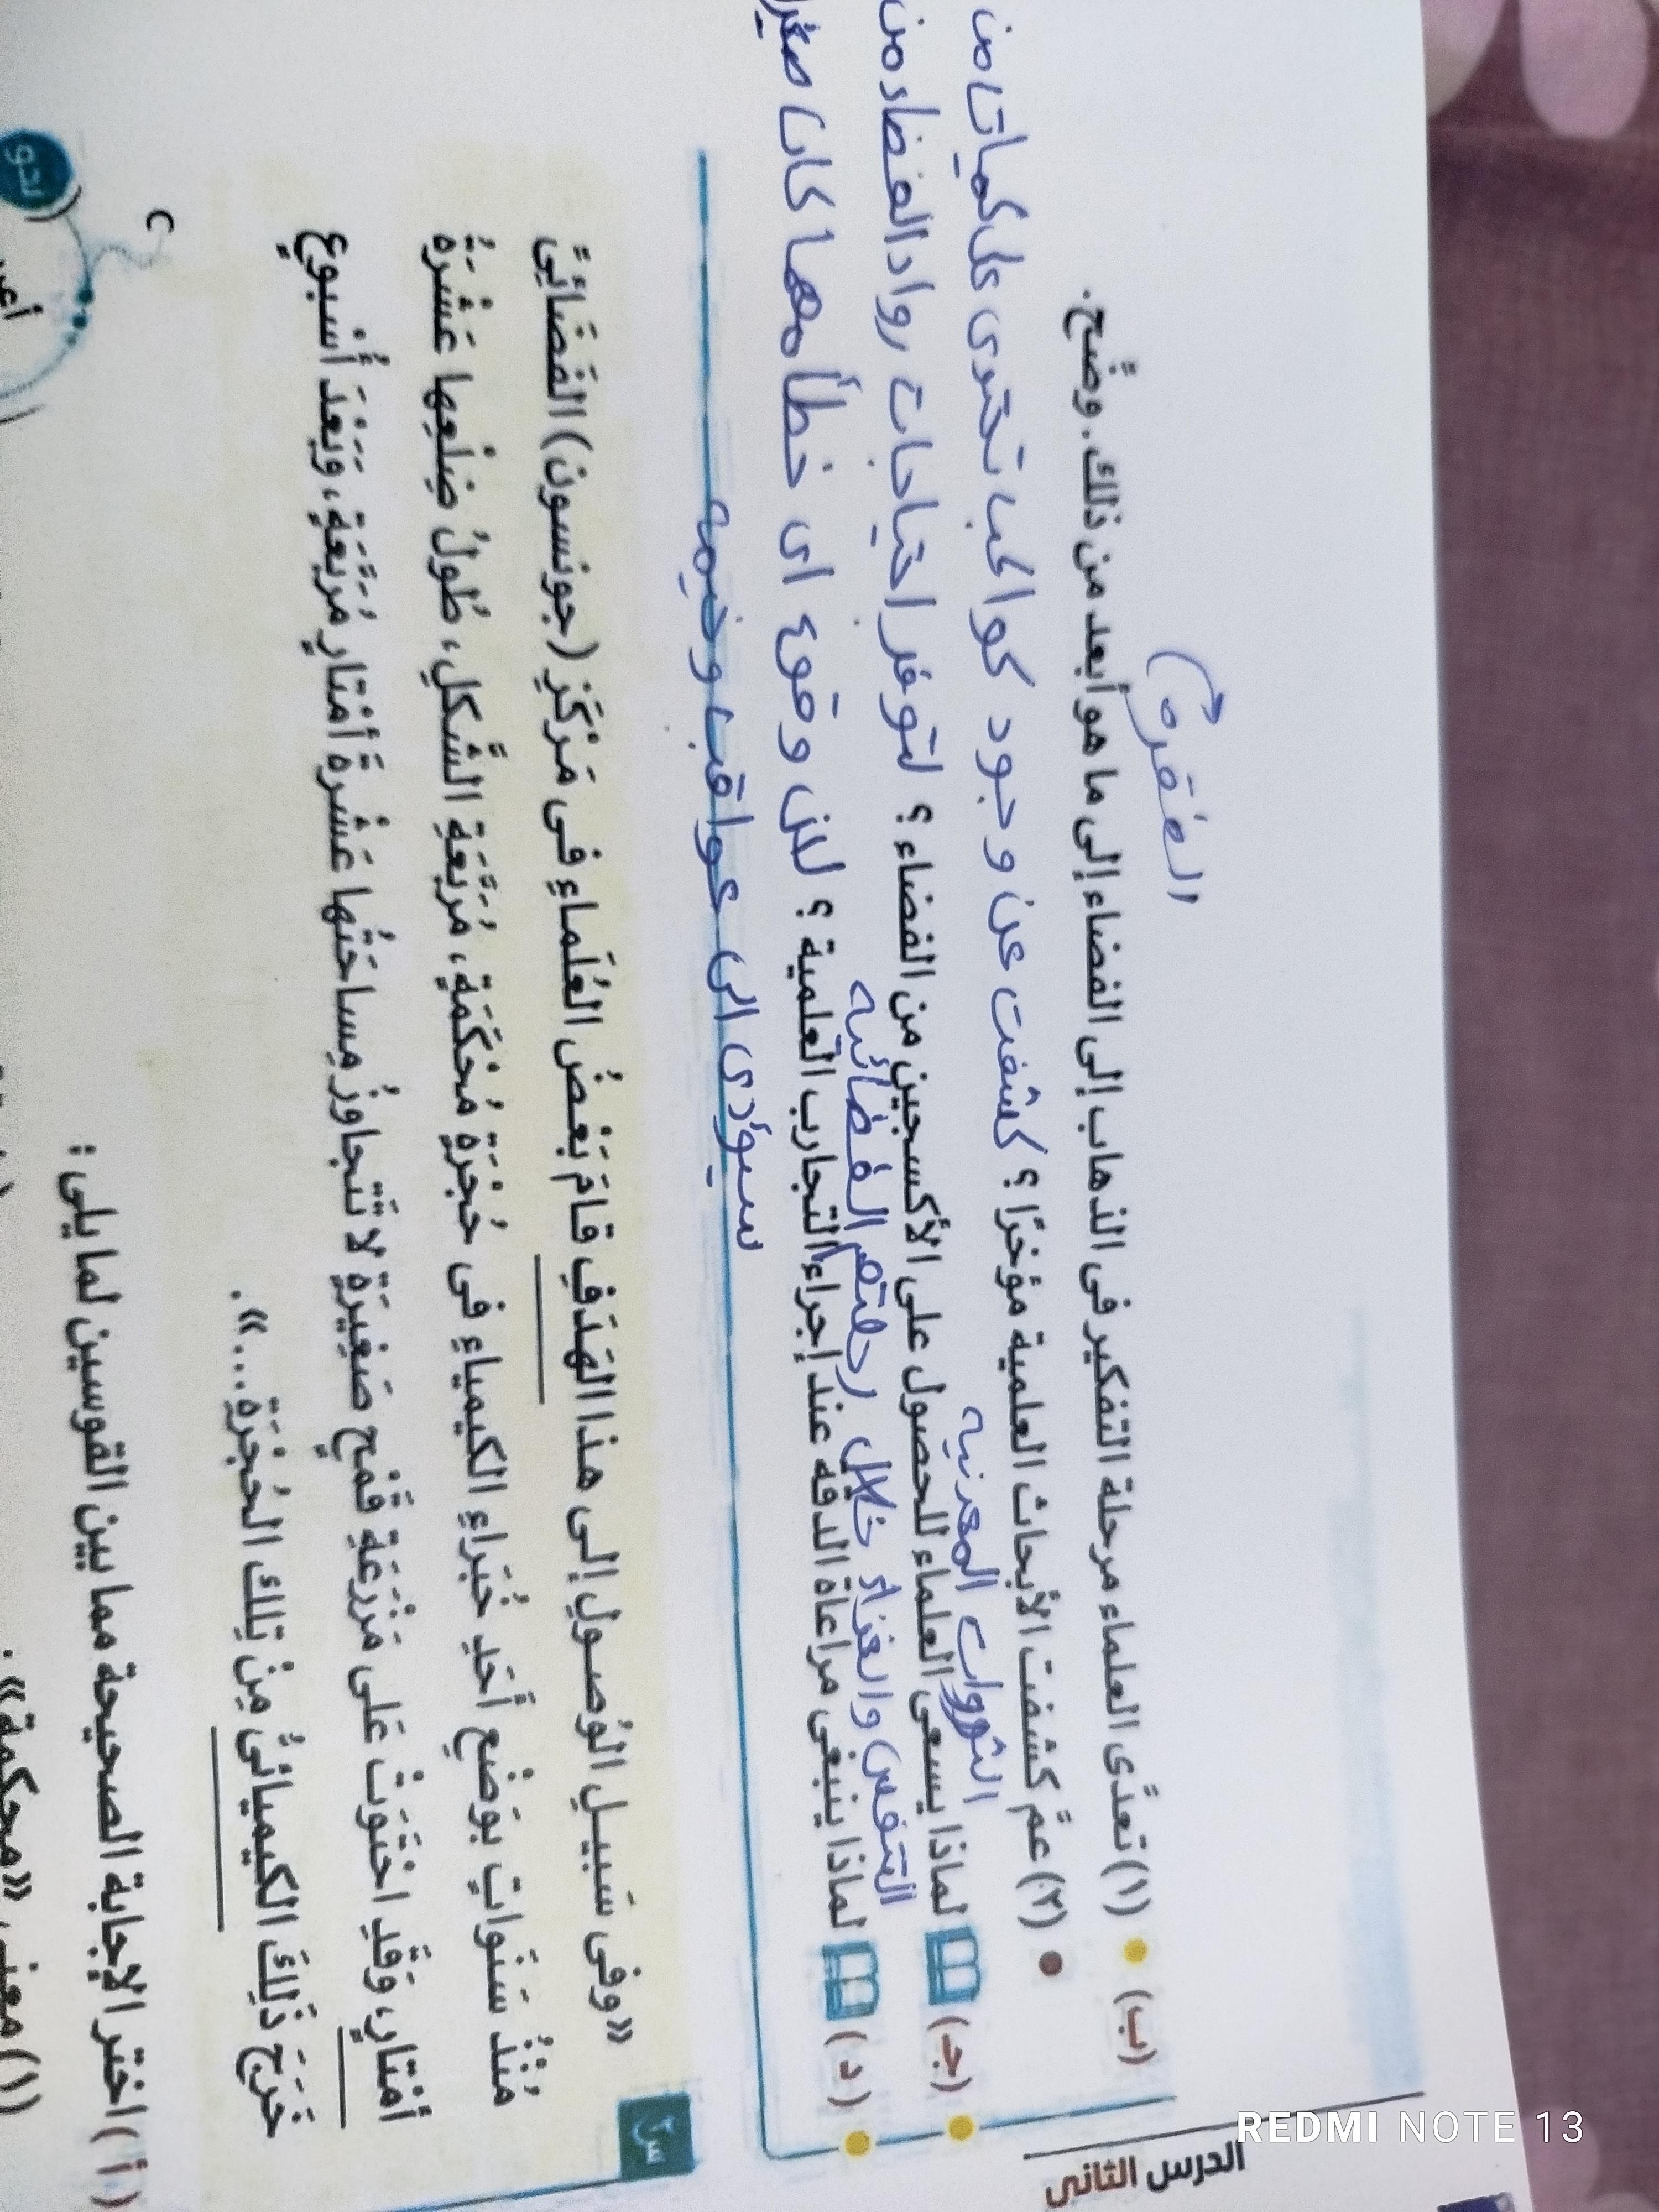 الدرس الثانى
الفقره
(ب) (١) تعدَّى العلماء مرحلة التفكير فى الذهاب إلى الفضاء إلى ما هو أبعد من ذلك. وضَّح.
(٢) عمَّ كشفت الأبحاث العلمية مؤخرًا؟ كشفت عن وجود كواكب تحتوى على كميات من
الثروات المعدنيه
(جـ) لماذا يسعى العلماء للحصول على الأكسجين من الفضاء؟ لتوفر احتياجات رواد الفضاء من
التنفس والغذاء خلال رحلتهم الفضائيه
(د) لماذا ينبغى مراعاة الدقة عند إجراء التجارب العلمية؟ لان وقوع اى خطأ مهما كان صغير
سيؤدى الى عواقب وخيمه
س٣
«وفى سَبيلِ الوُصولِ إلى هذا الهَدَفِ قامَ بَعْضُ العُلَماءِ فى مَرْكَزِ (جونسون) الفَضَائِىِّ
مُنْذُ سَنَواتٍ بوَضْعِ أَحَدِ خُبَراءِ الكيمياءِ فى حُجْرَةٍ مُحْكَمَةٍ، مُرَبَّعَةِ الشَّكلِ، طُولُ ضِلْعِها عَشْرَةُ
أمْتارٍ، وَقَدِ احْتَوَتْ عَلى مَزْرَعَةِ قَمْحٍ صَغِيرَةٍ لا تَتَجاوَزُ مِساحَتُها عَشْرَةَ أَمْتارٍ مُرَبَّعَةٍ، وَبَعْدَ أُسْبوعٍ
خَرَجَ ذَلِكَ الكيميائىُّ مِنْ تِلكَ الحُجْرَةِ...».
(أ) اختر الإجابة الصحيحة مما بين القوسين لما يلى:
نحو
(١) معنى «محكمة»